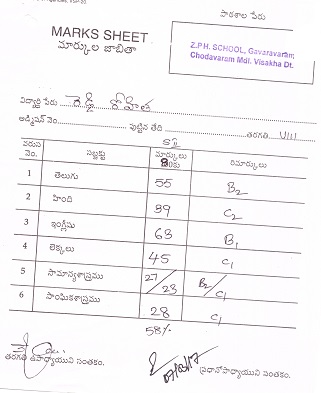 పాఠశాల పేరు
MARKS SHEET
మార్కుల జాబితా
Z.P.H. SCHOOL, Gavaravaram,
Chodavaram Mdl. Visakha Dt.
విద్యార్థి పేరు
అడ్మిషన్ నెం. పుట్టిన తేది తరగతి VIII
వరుస నెం. సబ్జక్టు మార్కులు రిమార్కులు
1 తెలుగు 55 B2
2 హింది 39 C2
3 ఇంగ్లీషు 63 B1
4 లెక్కలు 45 C1
5 సామాన్యశాస్త్రము 27/23 B2/C1
6 సాంఘికశాస్త్రము 28 C1
58%
తరగతి ఉపాధ్యాయుని సంతకం. ప్రధానోపాధ్యాయుని సంతకం.